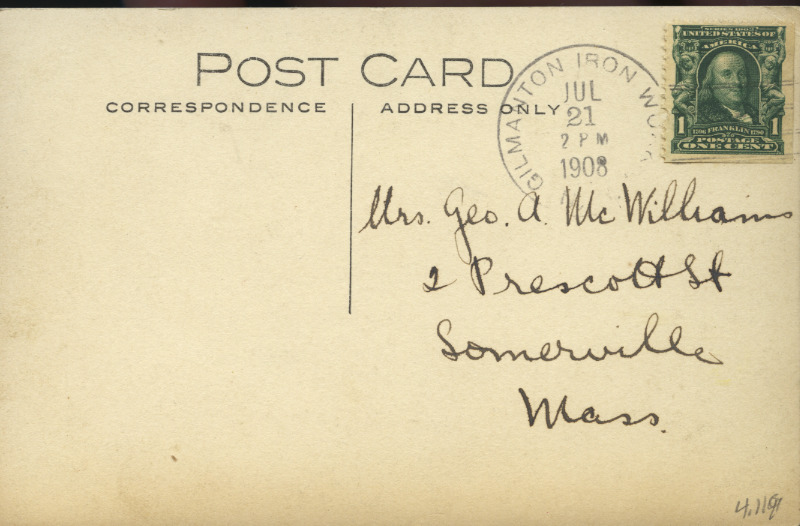 POST CARD
CORRESPONDENCE
ADDRESS ONLY
GILMANTON IRON WO
JUL
21
2 PM
1908
SERIES 1902
UNITED STATES OF
AMERICA
1 FRANKLIN 1
POSTAGE
ONE CENT
Mrs. Geo. A. McWilliams
2 Prescott St
Somerville
Mass.